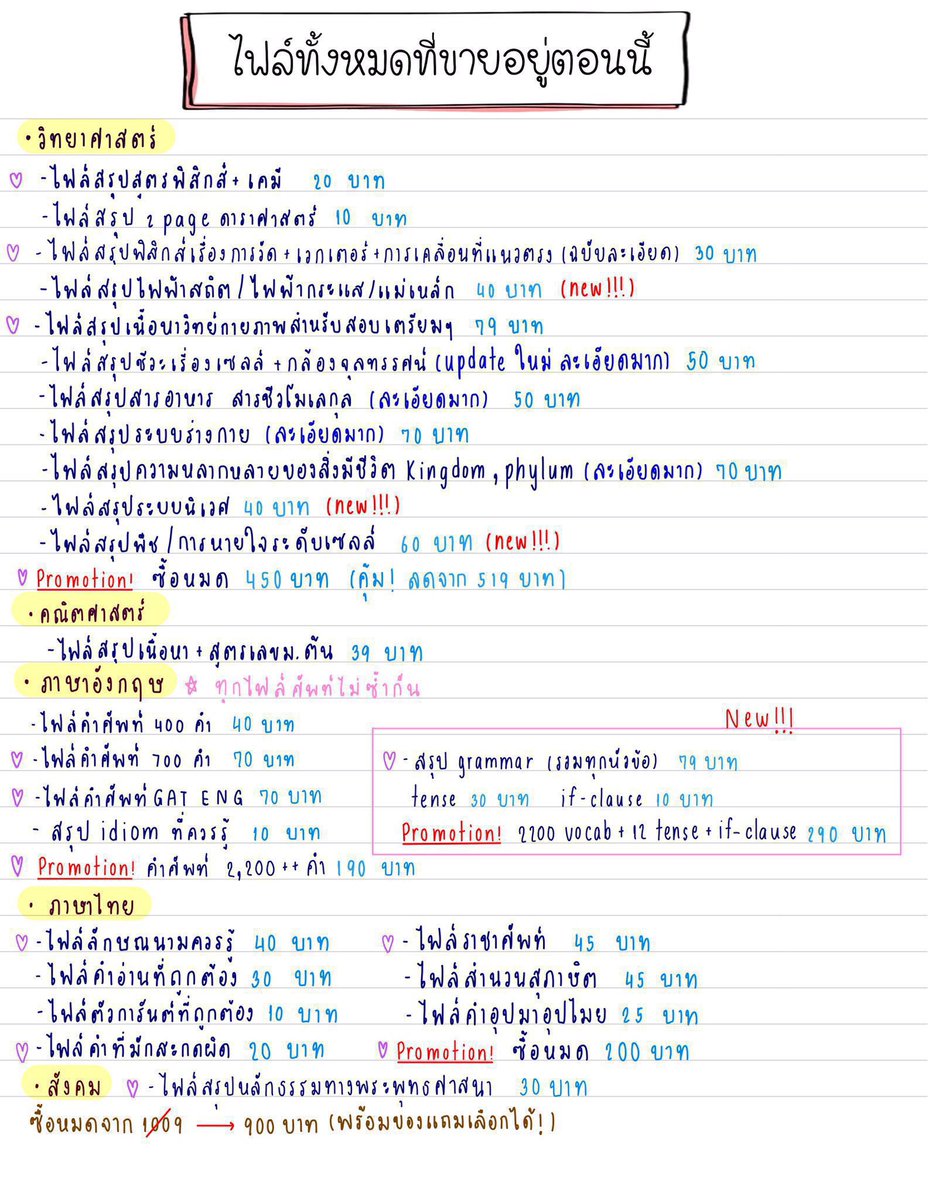 ไฟล์ทั้งหมดที่ขายอยู่ตอนนี้
• วิทยาศาสตร์
♡ - ไฟล์สรุปสูตรฟิสิกส์ + เคมี 20 บาท
- ไฟล์สรุป 2 page ดาราศาสตร์ 10 บาท
♡ - ไฟล์สรุปฟิสิกส์เรื่องการวัด + เวกเตอร์ + การเคลื่อนที่แนวตรง (ฉบับละเอียด) 30 บาท
- ไฟล์สรุปไฟฟ้าสถิต / ไฟฟ้ากระแส/แม่เหล็ก 40 บาท (new!!!)
♡ - ไฟล์สรุปเนื้อหาวิทย์กายภาพสำหรับสอบเตรียมฯ 79 บาท
- ไฟล์สรุปชีวะเรื่องเซลล์ + กล้องจุลทรรศน์ (update ใหม่ ละเอียดมาก) 50 บาท
- ไฟล์สรุปสารอาหาร สารชีวโมเลกุล (ละเอียดมาก) 50 บาท
- ไฟล์สรุประบบร่างกาย (ละเอียดมาก) 70 บาท
- ไฟล์สรุปความหลากหลายของสิ่งมีชีวิต Kingdom, phylum (ละเอียดมาก) 70 บาท
- ไฟล์สรุประบบนิเวศ 40 บาท (new!!!)
- ไฟล์สรุปพืช / การหายใจระดับเซลล์ 60 บาท (new!!!)
♡ Promotion! ซื้อหมด 450 บาท (คุ้ม! ลดจาก 519 บาท)
• คณิตศาสตร์
- ไฟล์สรุปเนื้อหา + สูตรเลขม.ต้น 39 บาท
• ภาษาอังกฤษ ☆ ทุกไฟล์ศัพท์ไม่ซ้ำกัน
- ไฟล์คำศัพท์ 400 คำ 40 บาท
♡ - ไฟล์คำศัพท์ 700 คำ 70 บาท
♡ - ไฟล์คำศัพท์ GAT ENG 70 บาท
- สรุป idiom ที่ควรรู้ 10 บาท
♡ Promotion! คำศัพท์ 2,200++ คำ 190 บาท
New!!!
♡ - สรุป grammar (รวมทุกหัวข้อ) 79 บาท
tense 30 บาท if-clause 10 บาท
Promotion! 2200 vocab + 12 tense + if-clause 290 บาท
• ภาษาไทย
♡ - ไฟล์ลักษณนามควรรู้ 40 บาท ♡ - ไฟล์ราชาศัพท์ 45 บาท
- ไฟล์คำอ่านที่ถูกต้อง 30 บาท - ไฟล์สำนวนสุภาษิต 45 บาท
- ไฟล์ตัวการันต์ที่ถูกต้อง 10 บาท - ไฟล์คำอุปมาอุปไมย 25 บาท
♡ - ไฟล์คำที่มักสะกดผิด 20 บาท ♡ Promotion! ซื้อหมด 200 บาท
• สังคม ♡ - ไฟล์สรุปหลักธรรมทางพระพุทธศาสนา 30 บาท
ซื้อหมดจาก 1009 → 900 บาท (พร้อมของแถมเลือกได้!)